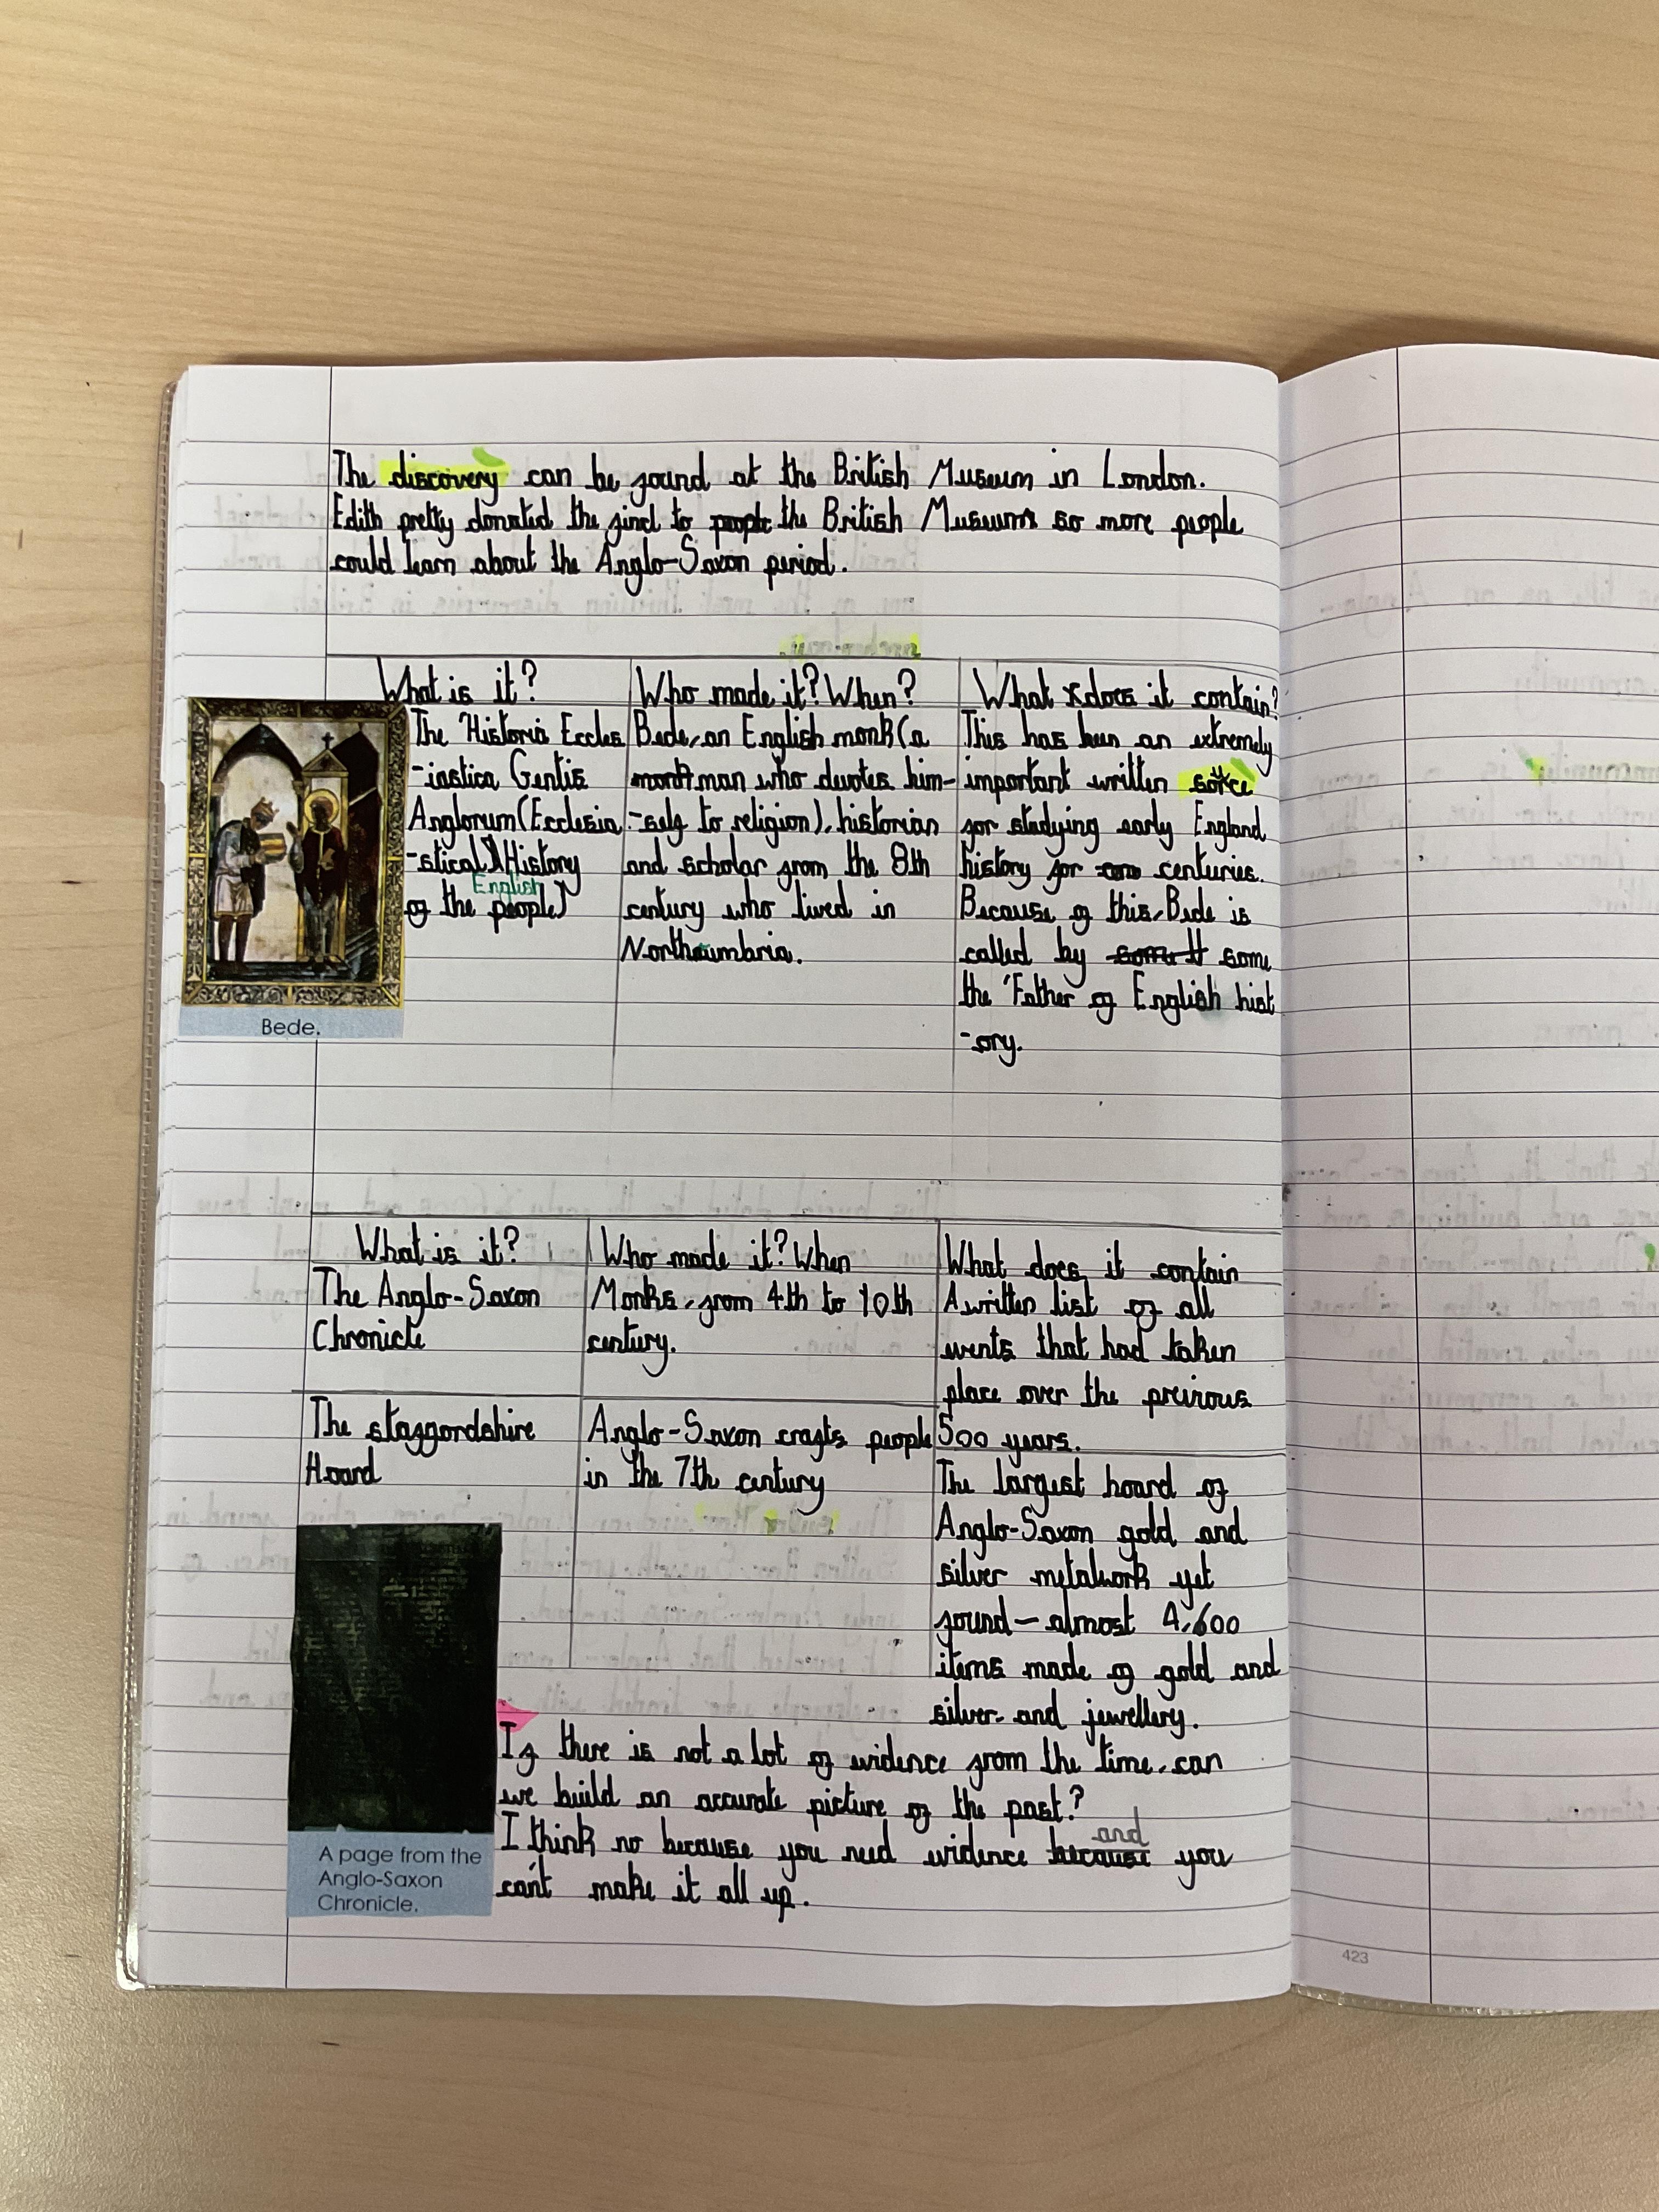 The discovery can be found at the British Museum in London.
Edith pretty donated the find to people the British Museum so more people
could learn about the Anglo-Saxon period.
What is it?
The Historia Eccles
-iastica Gentis
Anglorum (Ecclesia
-stical) History
English
of the people)
Bede.
Who made it? When?
Bede, an English monk (a
month man who devotes him-
-self to religion), historian
and scholar from the 8th
century who lived in
Northumbria.
What does it contain?
This has been an extremely
important written
for studying early England
history for centuries.
Because of this, Bede is
called by some
the 'Father of English hist
-ory.
What is it?
Who made it? When
What does it contain
The Anglo-Saxon
Chronicle
Monks, from 4th to 10th
century.
A written list of all
events that had taken
place over the previous
500 years.
The staffordshire
Hoard
Anglo-Saxon crafts people
in the 7th century
The largest hoard of
Anglo-Saxon gold and
silver metalwork yet
found - almost 4,600
items made of gold and
silver and jewellery.
A page from the
Anglo-Saxon
Chronicle.
If there is not a lot of evidence from the time, can
we build an accurate picture of the past?
and
I think no because you need evidence because you
can't make it all up.
423